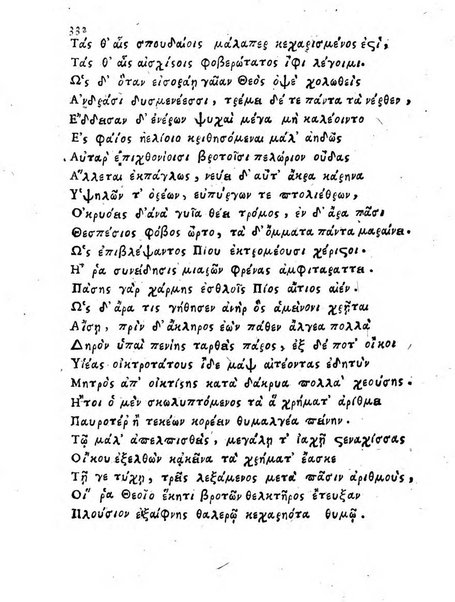 332
Τὰς θ' αἷς σπουδαίοις μάλαπερ κεχαρισμένος ἐςί,
Τὰς θ' αἷς αἰσχίςοις φοβερώτατος ἶφι λέγοιμι.
Ὡς δ' ὅταν εἰσοράῃ γαῖαν Θεὸς ὀψὲ χολωθεὶς
Ἀνδράσι δυσμενέεσσι, τρέμει δέ τε πάντα τὰ νέρθεν,
Ἔδδεισαν δ' ἐνέρων ψυχαὶ μέγα μὴ καλέοιντο
Ἐς φάος ἠελίοιο κριθησόμεναι μάλ' ἀηδῶς
Αὐτὰρ ἐπιχθονίοισι βροτοῖσι πελώριον οὖδας
Ἄλλεται ἐκπάγλως, νεύει δ' αὖτ' ἄκρα κάρηνα
Ὑψηλῶν τ' ὀρέων, εὐπύργων τε πτολιέθρων,
Ὀκρυόεις δ' ἀνὰ γυῖα θέει τρόμος, ἐν δ' ἄρα πᾶσι
Θεσπέσιος φόβος ὦρτο, τὰ δ' ὄμματα πάντα μαραίνει.
Ὣς ἐπιβλέψαντος Πίου ἐκτρομέουσι χέριςοι.
Ἦ ῥα συνείδησις μιαρῶν φρένας ἀμφιταράττει.
Πάσης γὰρ χάρμης ἐσθλοῖς Πίος αἴτιος αἰέν.
Ὡς δ' ἄρα τις γήθησεν ἀνὴρ ὃς ἀμείνονι χρῆται
Αἴσῃ, πρὶν δ' ἄκληρος ἐὼν πάθεν ἄλγεα πολλὰ
Δηρὸν ὑπαὶ πενίης ταρθεὶς πάρος, ἐξ δέ ποτ' οἴκοι
Υἱέας οἰκτροτάτους ἴδε μὰψ αἰτέοντας ἐδητὺν
Μητρὸς ἀπ' οἰκτίςης κατὰ δάκρυα πολλὰ χεούσης.
Ἤτοι ὁ μὲν σκωλυπτόμενος τὰ ἃ χρήματ' ἀριθμεῖ
Παυρότερ' ἢ τεκέων κορέειν θυμαλγέα πείνην.
Τῷ μάλ' ἀπελπισθεὶς, μεγάλῃ τ' ἰαχῇ ςεναχίσσας
Οἴκου ἐξελθὼν κἀκεῖνα τὰ χρήματ' ἔασκε
Τῇ γε τύχῃ, τρεῖς λεξάμενος μετὰ πᾶσιν ἀριθμοὺς,
Οἵ ῥα Θεοῖο ἕκητι βροτῶν θελκτῆρος ἔτευξαν
Πλούσιον ἐξαίφνης θαλερῷ κεχαρηότα θυμῷ.